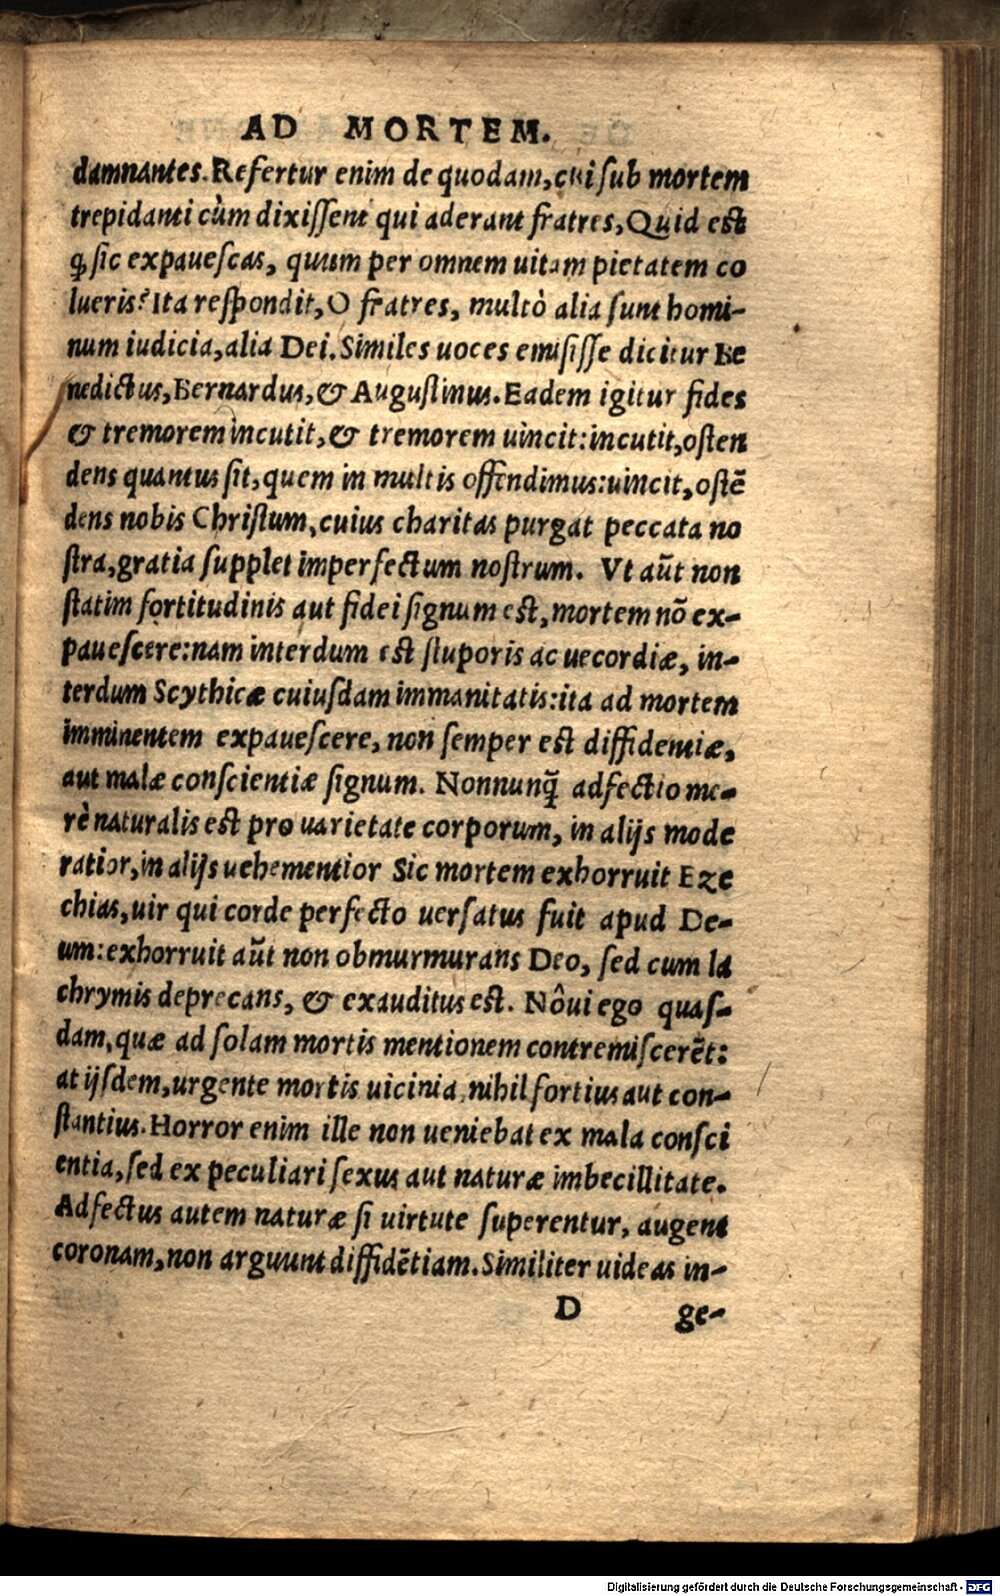 AD MORTEM.
damnantes. Refertur enim de quodam, cui sub mortem
trepidanti cùm dixissent qui aderant fratres, Quid est
ꝙ sic expauescas, quum per omnem uitam pietatem co
lueris? Ita respondit, O fratres, multò alia sunt homi-
num iudicia, alia Dei. Similes uoces emisisse dicitur Be
nedictus, Bernardus, & Augustinus. Eadem igitur fides
& tremorem incutit, & tremorem uincit: incutit, osten
dens quantus sit, quem in multis offendimus: uincit, ostẽ
dens nobis Christum, cuius charitas purgat peccata no
stra, gratia supplet imperfectum nostrum. Vt aũt non
statim fortitudinis aut fidei signum est, mortem nõ ex-
pauescere: nam interdum est stuporis ac uecordiæ, in-
terdum Scythicæ cuiusdam immanitatis: ita ad mortem
imminentem expauescere, non semper est diffidentiæ,
aut malæ conscientiæ signum. Nonnunq̃ adfectio me-
rè naturalis est pro uarietate corporum, in alijs mode
ratior, in alijs uehementior Sic mortem exhorruit Eze
chias, uir qui corde perfecto uersatus fuit apud De-
um: exhorruit aũt non obmurmurans Deo, sed cum la
chrymis deprecans, & exauditus est. Nôui ego quas-
dam, quæ ad solam mortis mentionem contremiscerẽt:
at ijsdem, urgente mortis uicinia, nihil fortius aut con-
stantius. Horror enim ille non ueniebat ex mala consci
entia, sed ex peculiari sexus aut naturæ imbecillitate.
Adfectus autem naturæ si uirtute superentur, augent
coronam, non arguunt diffidẽtiam. Similiter uideas in-
D ge-
Digitalisierung gefördert durch die Deutsche Forschungsgemeinschaft - DFG